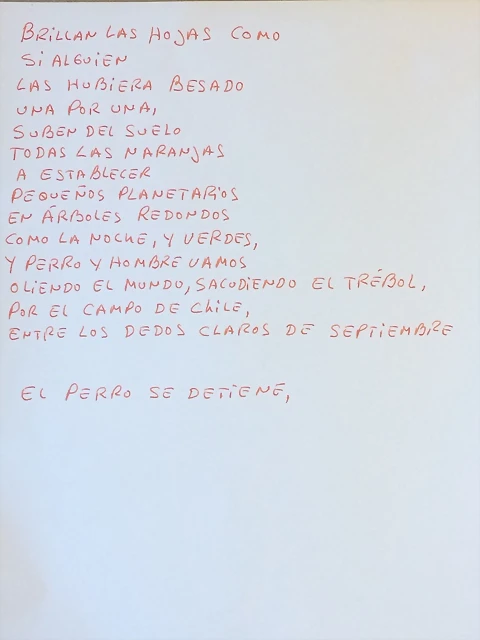 BRILLAN LAS HOJAS COMO
SI ALGUIEN
LAS HUBIERA BESADO
UNA POR UNA,
SUBEN DEL SUELO
TODAS LAS NARANJAS
A ESTABLECER
PEQUEÑOS PLANETARIOS
EN ÁRBOLES REDONDOS
COMO LA NOCHE, Y VERDES,
Y PERRO Y HOMBRE VAMOS
OLIENDO EL MUNDO, SACUDIENDO EL TRÉBOL,
POR EL CAMPO DE CHILE,
ENTRE LOS DEDOS CLAROS DE SEPTIEMBRE
EL PERRO SE DETIENE,